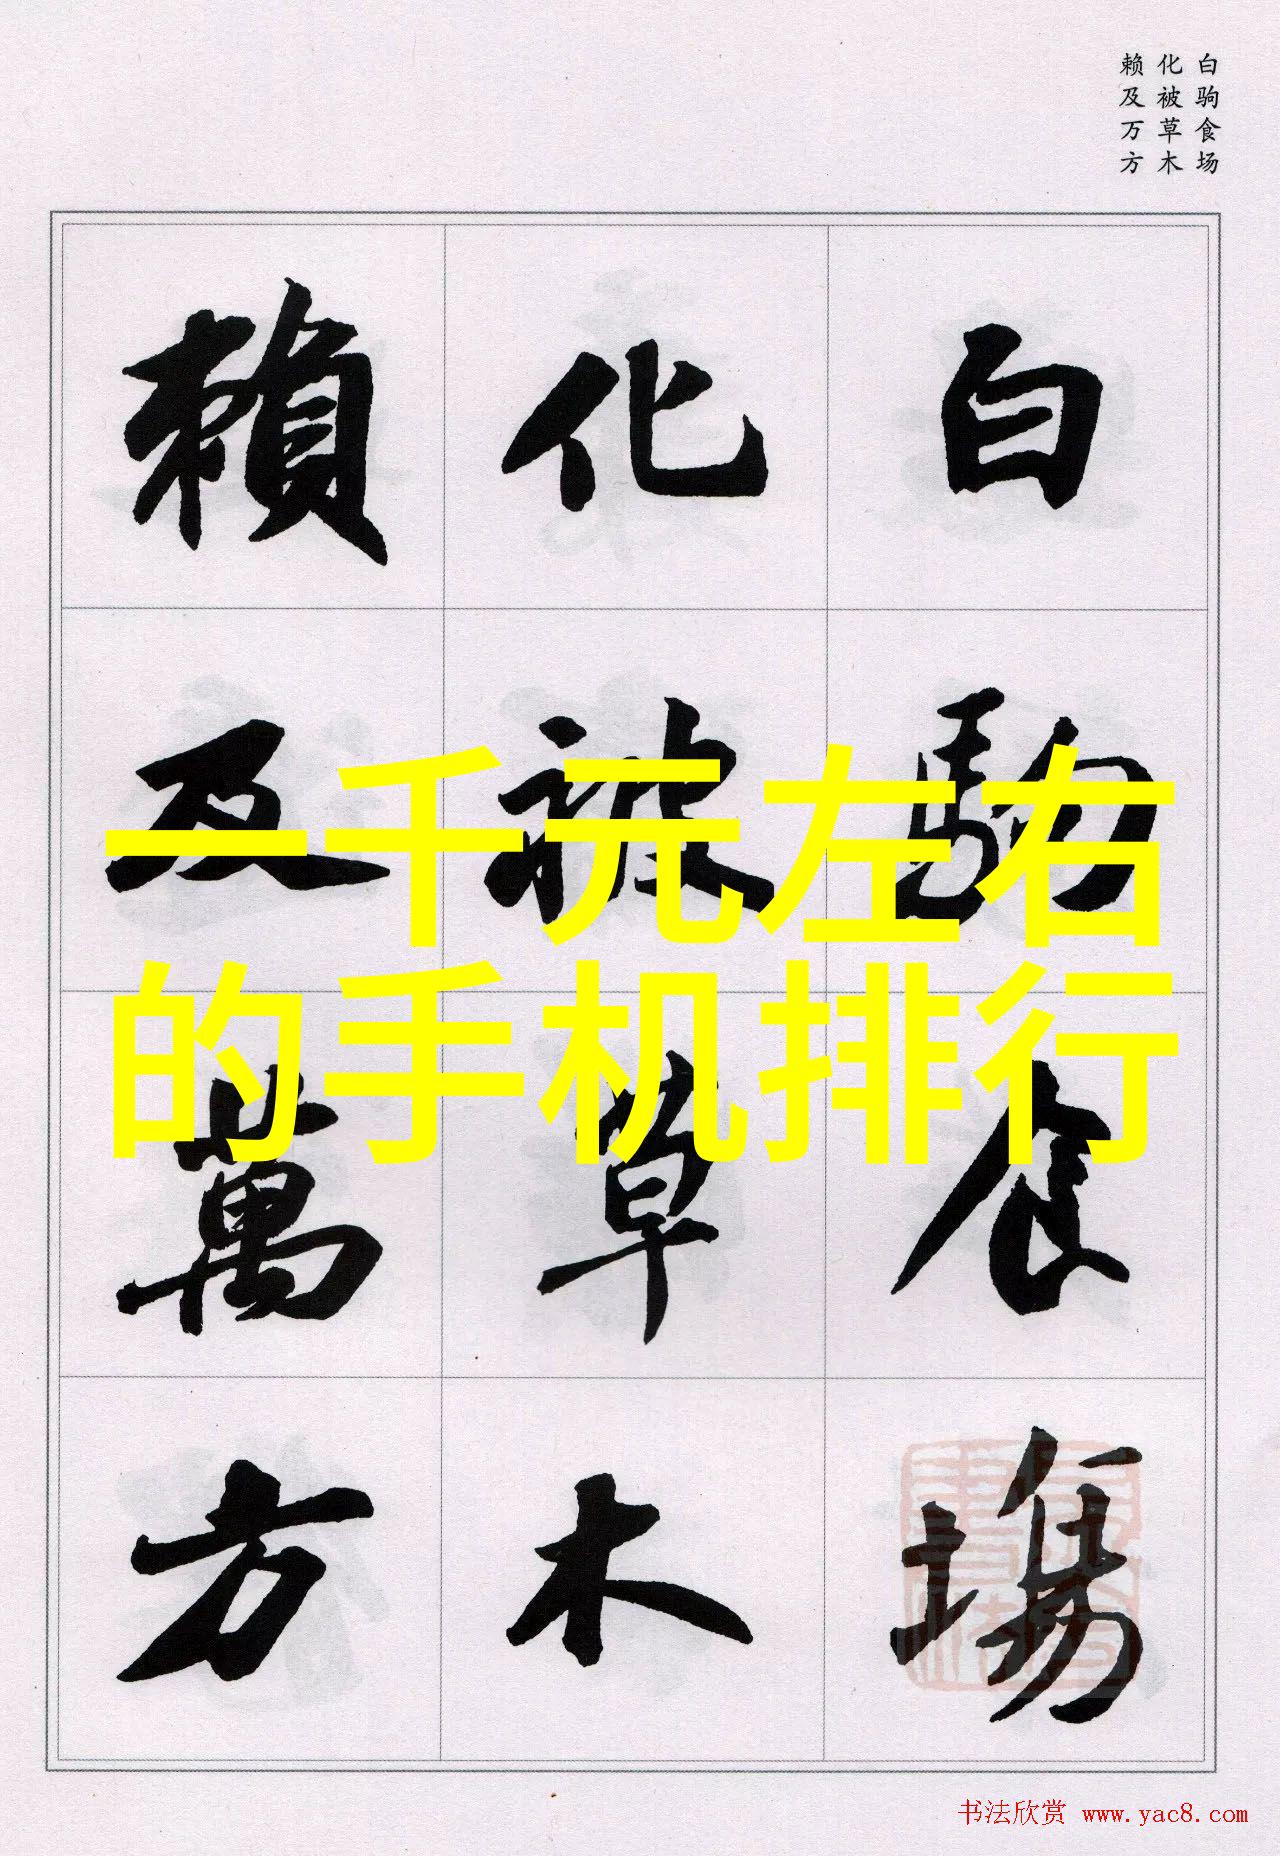 白驹食场
化被草木
赖及万方
白駒食場
化被草木
賴及萬方
一千元左右
的手机排行
书法欣赏 www.yac8.com